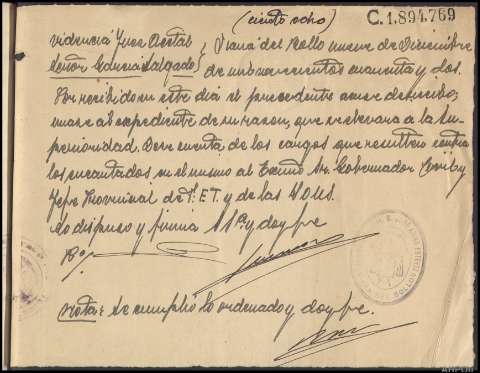 (ciento ocho)
C.1.894.769
Viana del Bollo nueve de Diciembre
Señor Educia Salgado
de mil novecientos cuarenta y dos.
Por recibido en este dia el precedente acuse de recibo,
unase al expediente de su razon, que se elevara a la Su-
perioridad. Dese cuenta de los cargos que resulten contra
los encartados en el mismo al Excmo Sr. Gobernador Civil y
Jefe Provincial de F. E.T. y de las J.O.N.S.
Lo dispuso y firma S Sª y doy fe
Nota: Se cumplió lo ordenado y doy fe.